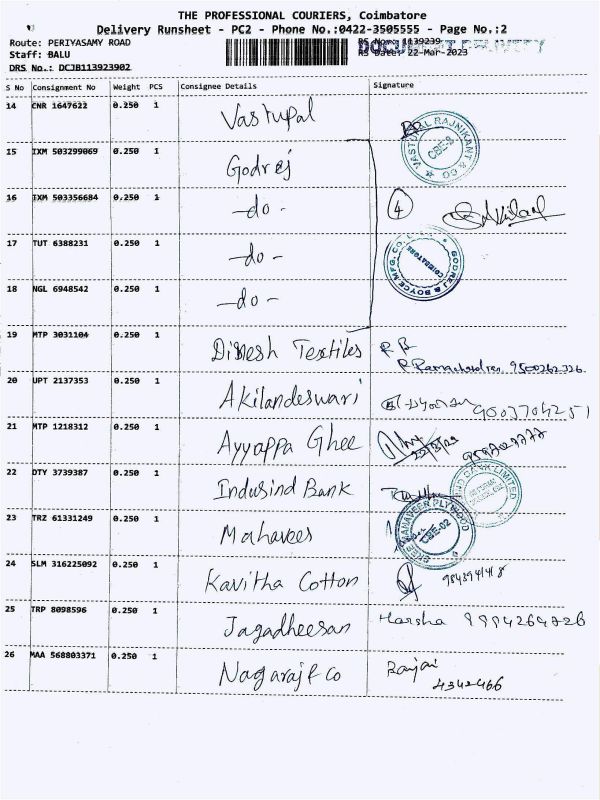 THE PROFESSIONAL COURIERS, Coimbatore
Delivery Runsheet - PC2 - Phone No.:0422-3505555 - Page No.:2
Route: PERIYASAMY ROAD RS No.: 1139239 DOCUMENT DELIVERY
Staff: BALU RS Date: 22-Mar-2023
DRS No.: DCJB113923902
S No Consignment No Weight PCS Consignee Details Signature
14 CNR 1647622 0.250 1 Vastupal
VASTUPAL RAJNIKANT & CO CBE-2
15 IXM 503299069 0.250 1 Godrej
16 IXM 503356684 0.250 1 -do- 4
17 TUT 6388231 0.250 1 -do-
GODREJ & BOYCE MFG. CO. COIMBATORE
18 NGL 6948542 0.250 1 -do-
19 MTP 3031104 0.250 1 Dinesh Textiles R B
R. Ramachandran
20 UPT 2137353 0.250 1 Akilandeswari 9003704251
21 MTP 1218312 0.250 1 Ayyappa Ghee
22 DTY 3739387 0.250 1 Indusind Bank
BANK LIMITED
23 TRZ 61331249 0.250 1 Mahaveer
SHREE MAHAVEER PLYWOOD CBE-02
24 SLM 316225092 0.250 1 Kavitha Cotton
25 TRP 8098596 0.250 1 Jagadheesan Harsha 9994264726
26 MAA 568803371 0.250 1 Nagaraj & co Ranjai
4342466